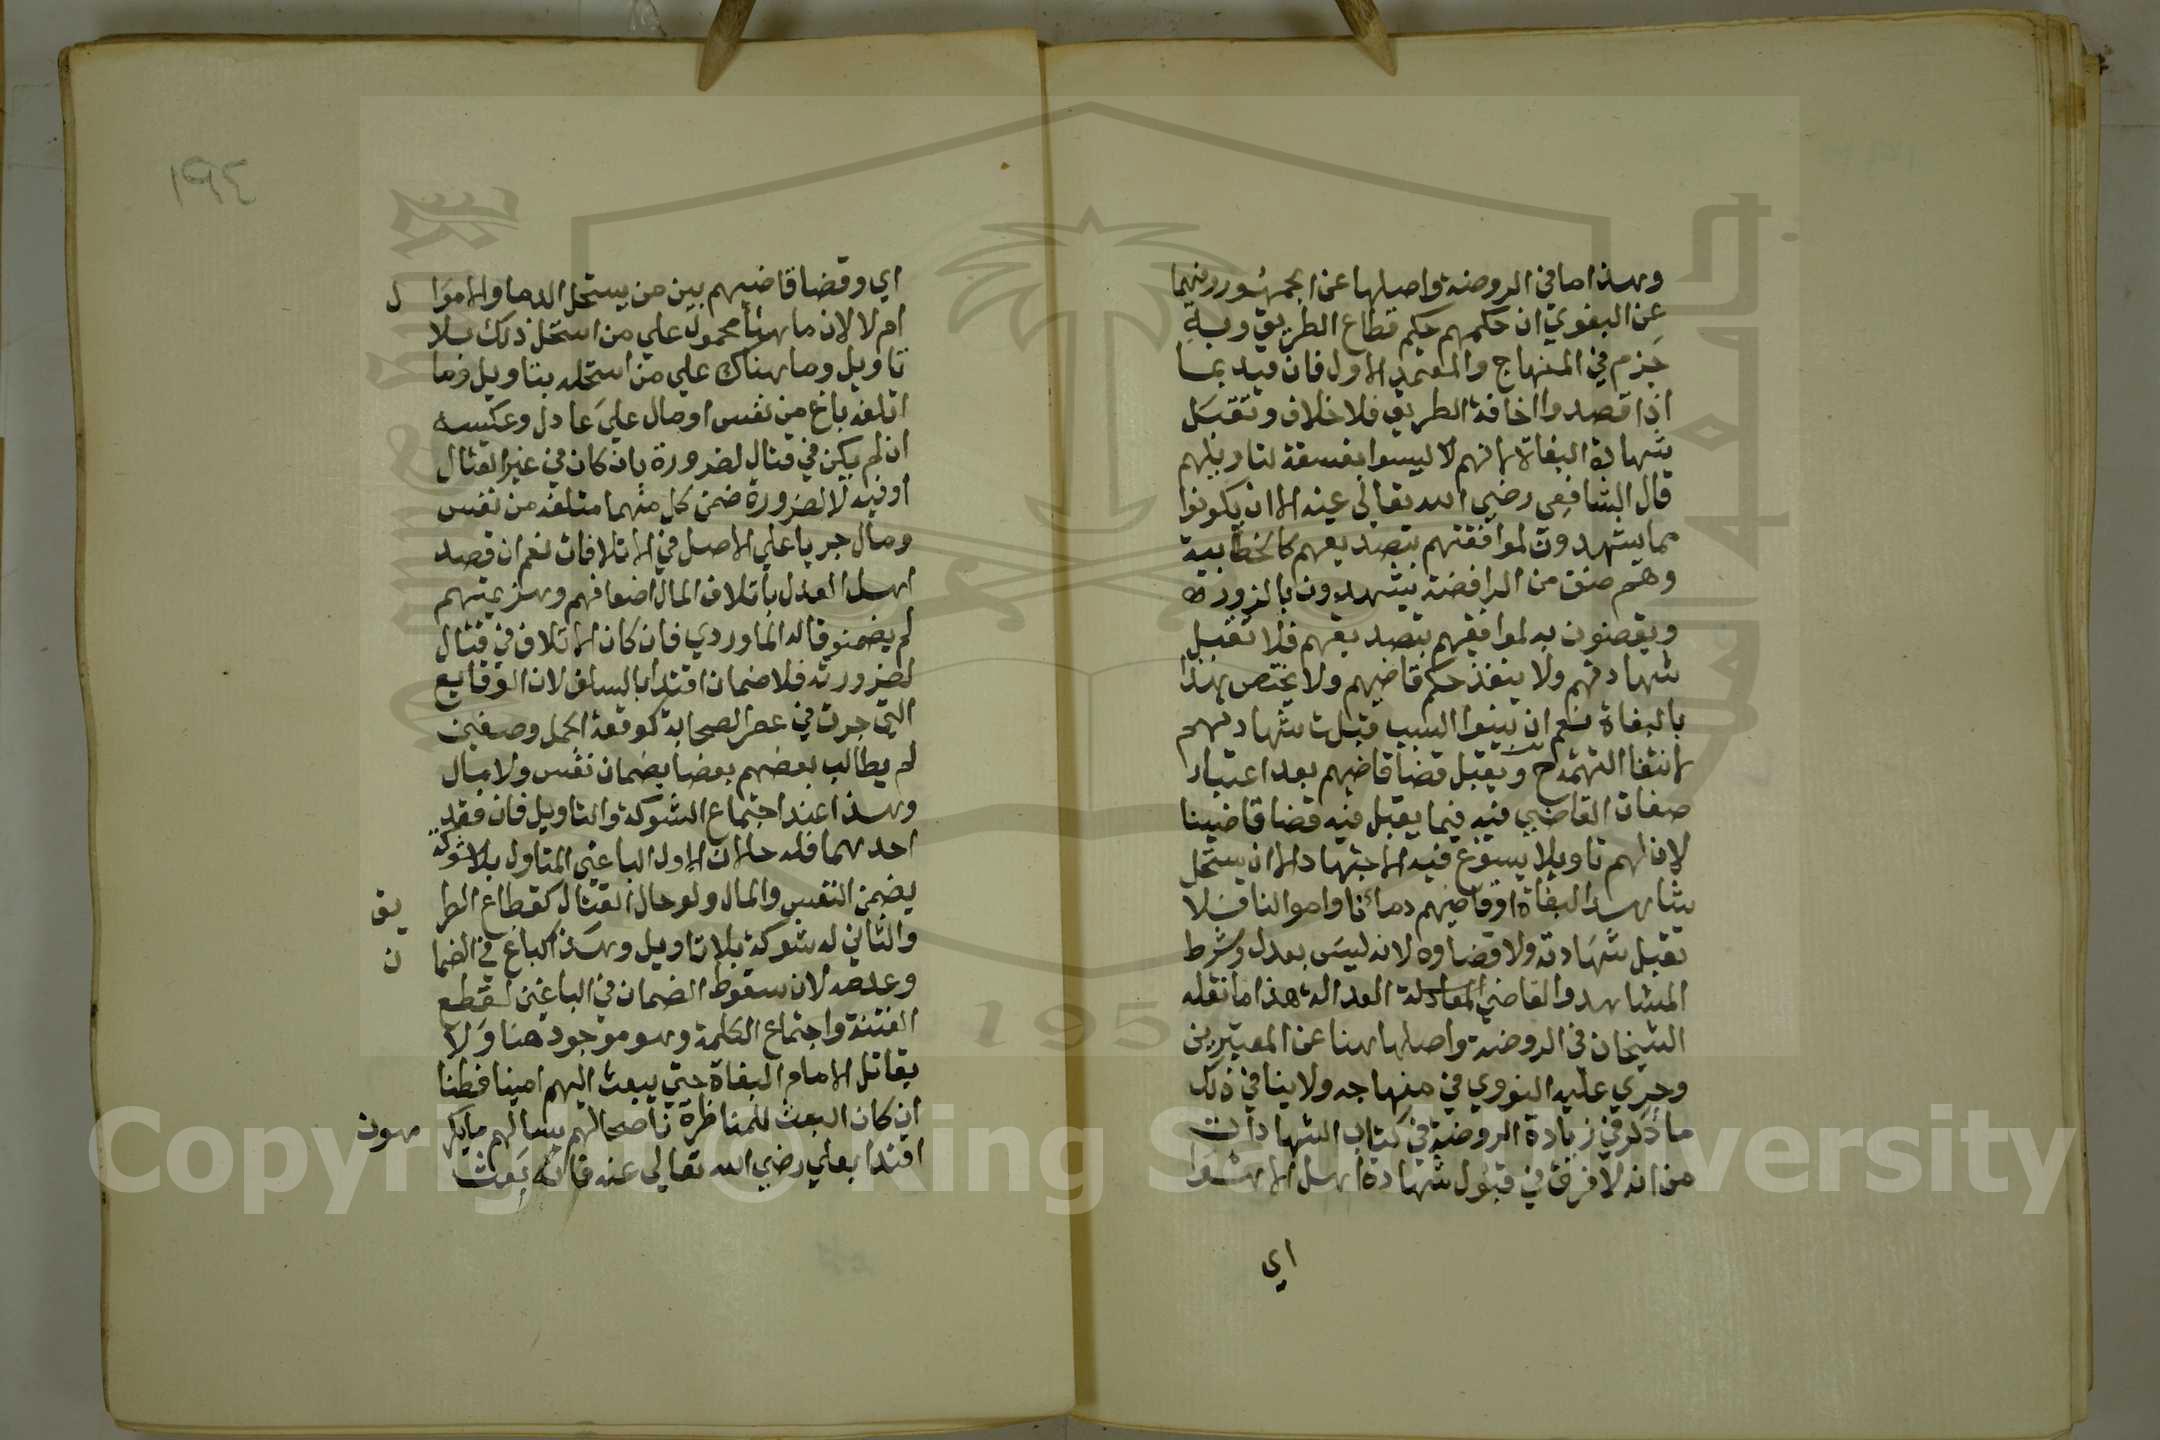 وهذا ما في الروضة واصلها عن الجمهور وفيهما
عن البغوي ان حكمهم حكم قطاع الطريق وبه
جزم في المنهاج والمعتمد الاول فان قيد بما
اذا قصدوا اخافة الطريق فلا خلاف وتقبل
شهادة البغاة لانهم لا ليسوا بفسقة لتاويلهم
قال الشافعي رضي الله تعالى عنه الا ان يكونوا
مما يشهدون لموافقتهم بتصديقهم كالخطابية
وهم صنف من الرافضة يشهدون بالزور
ويقصنون به لموافيقهم بتصديقهم فلا تقبل
شهادتهم ولا ينفذ حكم قاضيهم ولا يختص بهذا
بالبغاة نعم ان بينوا السبب قبلت شهادتهم
لانتفا التهمة ح ويقبل قضا قاضيهم بعد اعتبار
صفات القاضي فيه فيما يقبل فيه قضا قاضينا
لان لهم تاويلا يسوغ فيه الاجتهاد الا ان يستحل
شاهد البغاة او قاضيهم دمائنا واموالنا فلا
تقبل شهادته ولا قضاوه لانه ليس بعدل وشرط
المشاهد والقاضي العدالة هذا ما نقله
الشيخان في الروضة واصلها هنا عن المعتبرين
وجري عليه النووي في منهاجه ولا ينافي ذلك
ما ذكر في زيادة الروضة في كتاب الشهادات
من انه لا فرق في قبول شهادة اهل الاهوا
اي
١٩٤
اي وقضا قاضيهم بين من يستحل الدما والاموال
ام لا لان ما هنا محمول علي من استحل ذلك بلا
تاويل وما هناك علي من استحله بتاويل وما
اتلفه باغ من نفس او مال علي عادل وعكسه
ان لم يكن في قتال لضرورة بان كان في غير القتال
او فيه لا لضرورة ضمن كل منهما متلفه من نفس
ومال جريا علي الاصل في الاتلافات نعم ان قصد
اهل العدل باتلاف المال اضعافهم وهزيمتهم
لم يضمنو قاله الماوردي فان كان الاتلاف في قتال
لضرورته فلا ضمان اقتدا بالسلف لان الوقايع
التي جرت في عصر الصحابة كوقعة الجمل وصفين
لم يطالب بعضهم بعضا بضمان نفس ولا مال
وهذا عند اجتماع الشوكة والتاويل فان فقد
احدهما فله حالان الاول الباغي المتاول بلا شوكة
يضمن النفس والمال ولو حال القتال كقطاع الطريق
والثاني له شوكة بلا تاويل وهذا كباغ في الضمان
وعدمه لان سقوط الضمان في الباغين لقطع
الفتنة واجتماع الكلمة وهو موجود هنا ولا
يقاتل الامام البغاة حتي يبعث اليهم امينا فطنا
ان كان البعث للمناظرة ناصحا لهم يسالهم ما يكرهون
اقتدا بعلي رضي الله تعالى عنه فانه بعث
Copyright © King Saud University
1957